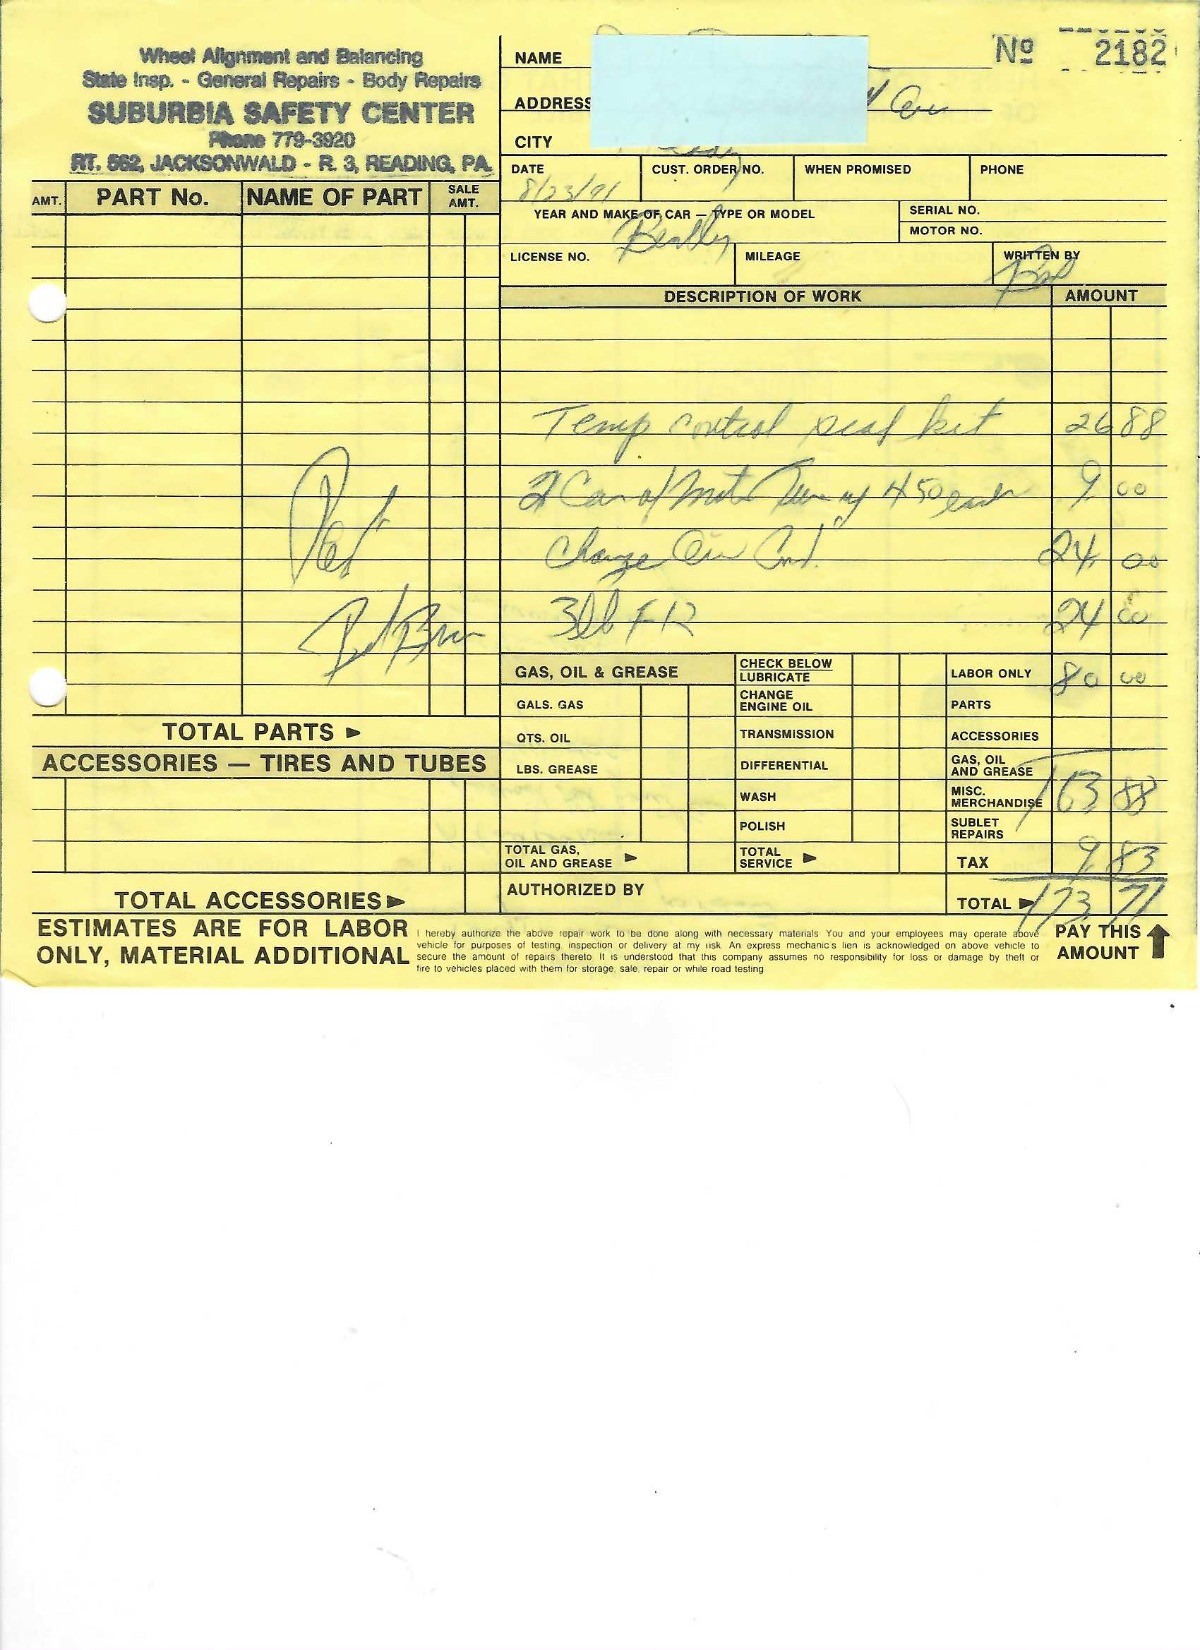 Wheel Alignment and Balancing
State Insp. - General Repairs - Body Repairs
SUBURBIA SAFETY CENTER
Phone 779-3920
RT. 562, JACKSONWALD - R. 3, READING, PA.
NAME
Nº 2182
ADDRESS
CITY
DATE CUST. ORDER NO. WHEN PROMISED PHONE
8/23/91
YEAR AND MAKE OF CAR — TYPE OR MODEL SERIAL NO.
Bentley
MOTOR NO.
LICENSE NO. MILEAGE WRITTEN BY
AMT. PART No. NAME OF PART SALE AMT.
DESCRIPTION OF WORK AMOUNT
Temp control seal kit 26 88
2 Can of 450 each 9 00
Charge Air Cond. 24 00
3 lb F-12 24 00
GAS, OIL & GREASE CHECK BELOW LUBRICATE LABOR ONLY 80 00
GALS. GAS CHANGE ENGINE OIL PARTS
QTS. OIL TRANSMISSION ACCESSORIES
LBS. GREASE DIFFERENTIAL GAS, OIL AND GREASE
WASH MISC. MERCHANDISE 163 88
POLISH SUBLET REPAIRS
TOTAL GAS, OIL AND GREASE TOTAL SERVICE TAX 9 83
AUTHORIZED BY TOTAL 173 71
TOTAL PARTS
ACCESSORIES — TIRES AND TUBES
TOTAL ACCESSORIES
ESTIMATES ARE FOR LABOR
ONLY, MATERIAL ADDITIONAL
I hereby authorize the above repair work to be done along with necessary materials You and your employees may operate above
vehicle for purposes of testing, inspection or delivery at my risk An express mechanic's lien is acknowledged on above vehicle to
secure the amount of repairs thereto It is understood that this company assumes no responsibility for loss or damage by theft or
fire to vehicles placed with them for storage, sale, repair or while road testing
PAY THIS
AMOUNT